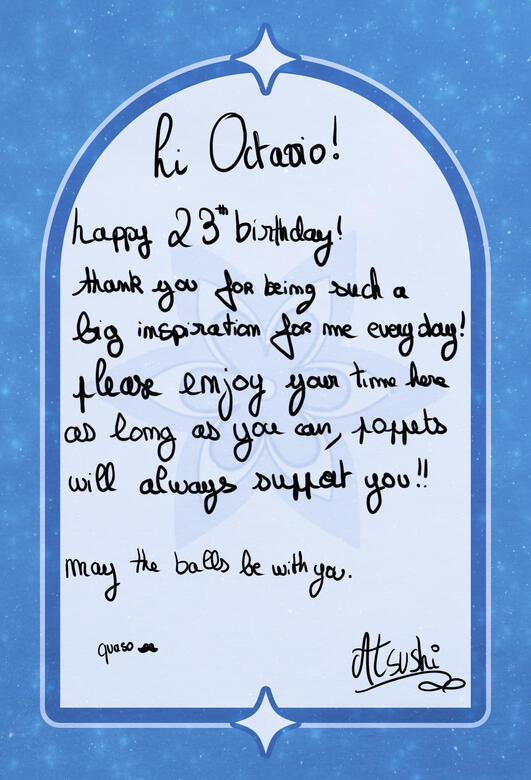 hi Octavio!
happy 23th birthday!
thank you for being such a
big inspiration for me everyday!
please enjoy your time here
as long as you can, poppets
will always support you!!
may the balls be with you.
quaso
Atsushi